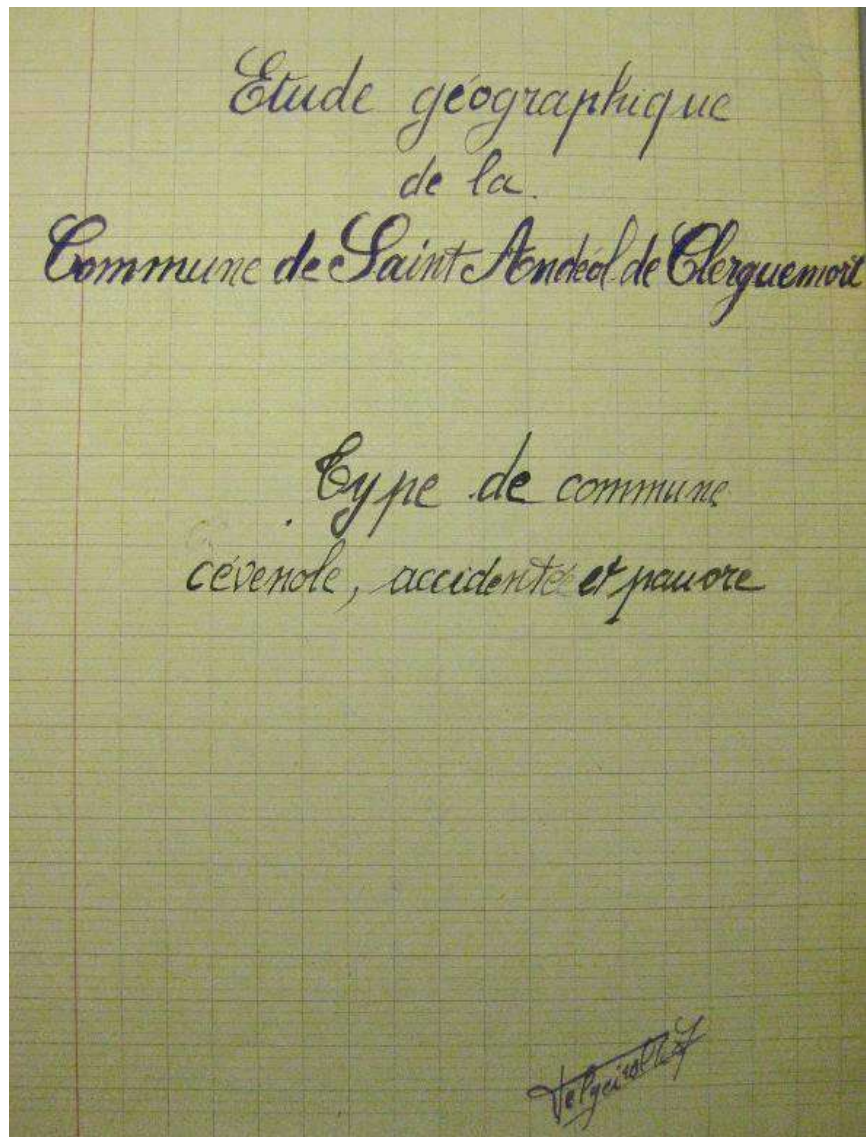 Etude géographique
de la
Commune de Saint Andéol de Clerguemort
Type de commune
cévenole, accidentée et pauvre